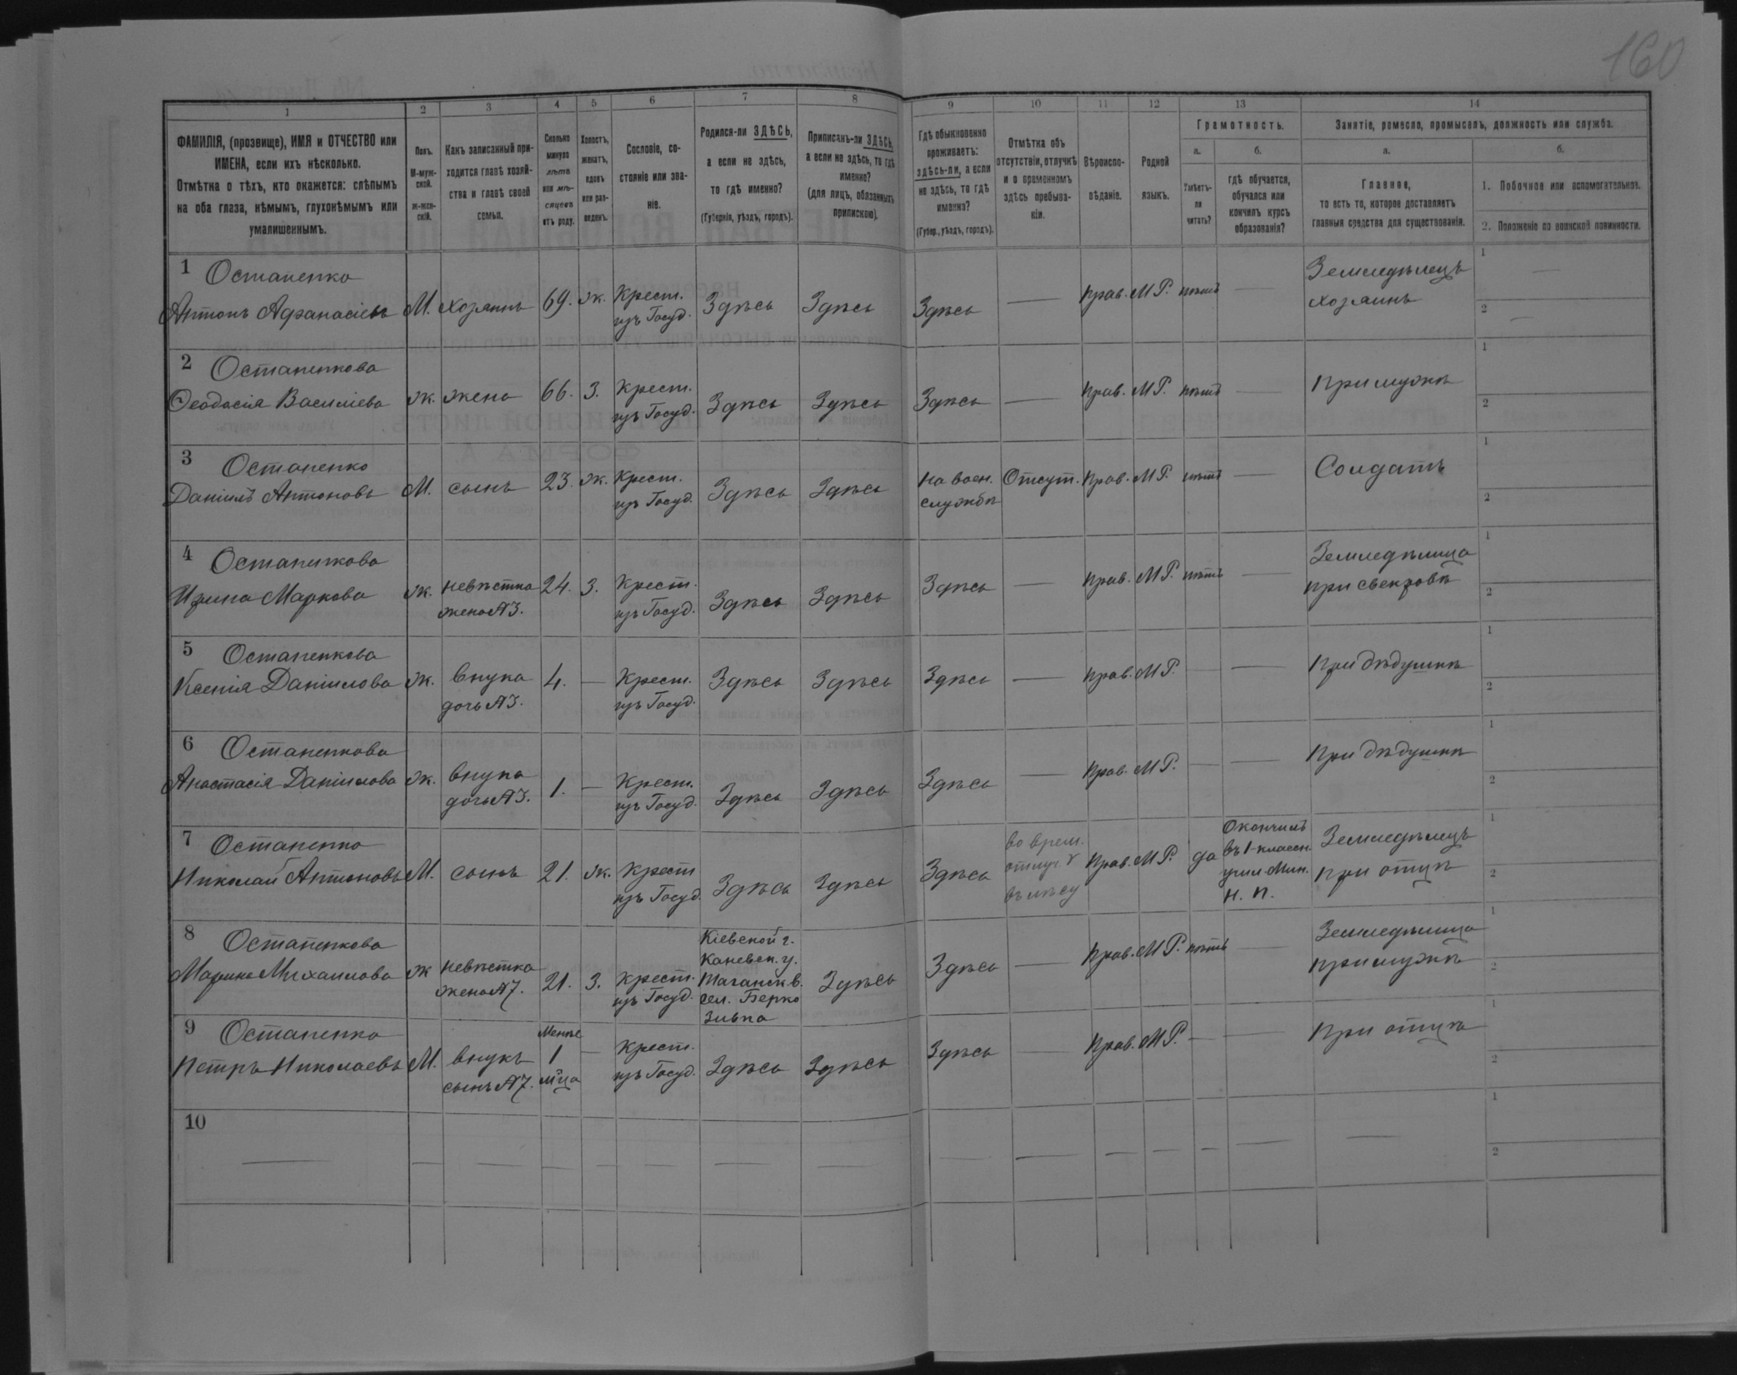 160
1 2 3 4 5 6 7 8 9 10 11 12 13 14
ФАМИЛІЯ, (прозвище), ИМЯ и ОТЧЕСТВО или
ИМЕНА, если ихъ нѣсколько.
Отмѣтка о тѣхъ, кто окажется: слѣпымъ
на оба глаза, нѣмымъ, глухонѣмымъ или
умалишеннымъ.
Полъ.
М-муж-
ской.
Ж-жен-
скій.
Какъ записанный при-
ходится главѣ хозяй-
ства и главѣ своей
семьи.
Сколько
минуло
лѣтъ
или мѣ-
сяцевъ
отъ роду.
Холостъ,
женатъ,
вдовъ
или раз-
веденъ.
Сословіе, со-
стояніе или зва-
ніе.
Родился-ли ЗДѢСЬ,
а если не здѣсь,
то гдѣ именно?
(Губернія, уѣздъ, городъ).
Приписанъ-ли ЗДѢСЬ,
а если не здѣсь, то гдѣ
именно?
(для лицъ, обязанныхъ
припискою).
Гдѣ обыкновенно
проживаетъ:
здѣсь-ли, а если
не здѣсь, то гдѣ
именно?
(Губер., уѣздъ, городъ).
Отмѣтка объ
отсутствіи, отлучкѣ
и о временномъ
здѣсь пребыва-
ніи.
Вѣроиспо-
вѣданіе.
Родной
языкъ.
Грамотность.
а.
Умѣетъ-
ли
читать?
б.
гдѣ обучается,
обучался или
кончилъ курсъ
образованія?
Занятіе, ремесло, промыселъ, должность или служба.
а.
Главное,
то есть то, которое доставляетъ
главныя средства для существованія.
б.
1. Побочное или вспомогательное.
2. Положеніе по воинской повинности.
1 Остапенко Земледѣлецъ 1
Антонъ Афанасіевъ М. хозяинъ 69. ж. Крест. Здѣсь Здѣсь Здѣсь — Прав. М Р. нѣтъ — хозяинъ
изъ Госуд. 2
2 Остапенкова 1
Ѳеодосія Василіева ж. жена 66. З. Крест. Здѣсь Здѣсь Здѣсь — Прав. М Р. нѣтъ — При мужѣ
изъ Госуд. 2
3 Остапенко 1
Даніилъ Антоновъ М. сынъ 23. ж. Крест. Здѣсь Здѣсь На воен. Отсут. Прав. М Р. нѣтъ — Солдатъ
изъ Госуд. службѣ 2
4 Остапенкова Земледѣлица 1
Ирина Маркова ж. невѣстка 24. З. Крест. Здѣсь Здѣсь Здѣсь — Прав. М Р. нѣтъ — при свекровѣ
жена №3. изъ Госуд. 2
5 Остапенкова 1
Ксенія Даніилова ж. внука 4. — Крест. Здѣсь Здѣсь Здѣсь — Прав. М Р. — — При дѣдушкѣ
дочь №3. изъ Госуд. 2
6 Остапенкова 1
Анастасія Даніилова ж. внука 1. — Крест. Здѣсь Здѣсь Здѣсь — Прав. М Р. — — При дѣдушкѣ
дочь №3. изъ Госуд. 2
7 Остапенко во врем. Окончилъ Земледѣлецъ 1
Николай Антоновъ М. сынъ 21. ж. Крест Здѣсь Здѣсь Здѣсь отлуч. Прав. М Р. да въ 1-классн. при отцѣ
изъ Госуд. въ лѣсу учил. Мин. 2
Н. П.
8 Остапенкова Кіевской г. Земледѣлица 1
Марина Михаилова ж невѣстка 21. З. Крест. Каневск. у. Здѣсь Здѣсь — Прав. М Р. нѣтъ — при мужѣ
жена №7. изъ Госуд. Таганск. в. 2
сел. Берко
зивка
9 Остапенко Менѣе 1
Петръ Николаевъ М. внукъ 1 — Крест. Здѣсь Здѣсь Здѣсь — Прав. М Р. — — При отцѣ
сынъ №7. м-ца изъ Госуд. 2
10 1
2